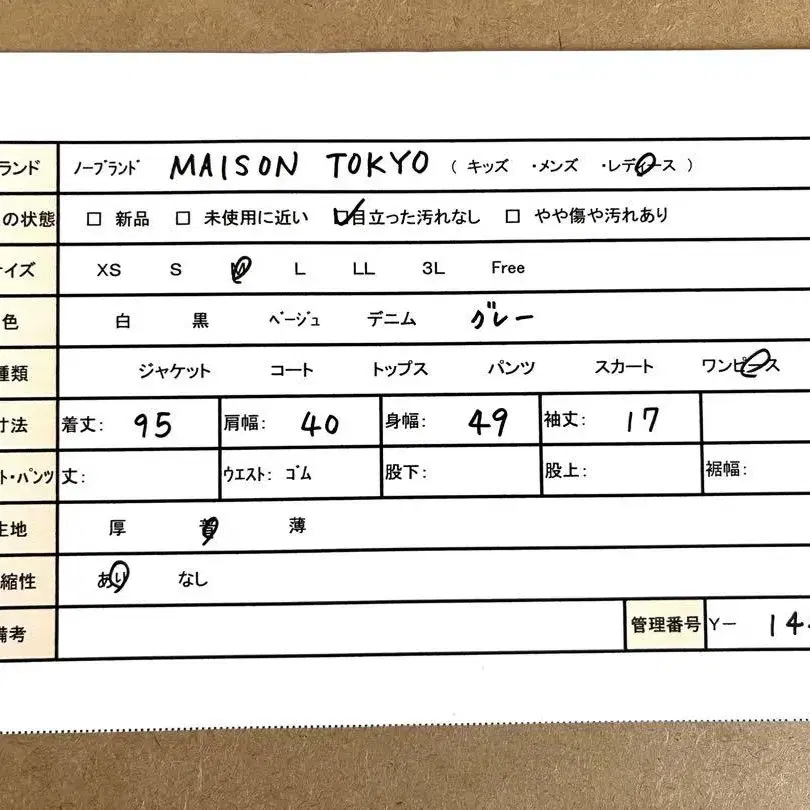 ランド ノーブランド MAISON TOKYO ( キッズ ・メンズ ・レディース )
の状態 □ 新品 □ 未使用に近い ☑目立った汚れなし □ やや傷や汚れあり
イズ XS S M L LL 3L Free
色 白 黒 ベージュ デニム グレー
種類 ジャケット コート トップス パンツ スカート ワンピース
寸法 着丈: 95 肩幅: 40 身幅: 49 袖丈: 17
ト・パンツ 丈: ウエスト: ゴム 股下: 股上: 裾幅:
生地 厚 普 薄
縮性 あり なし
備考 管理番号 Y- 14